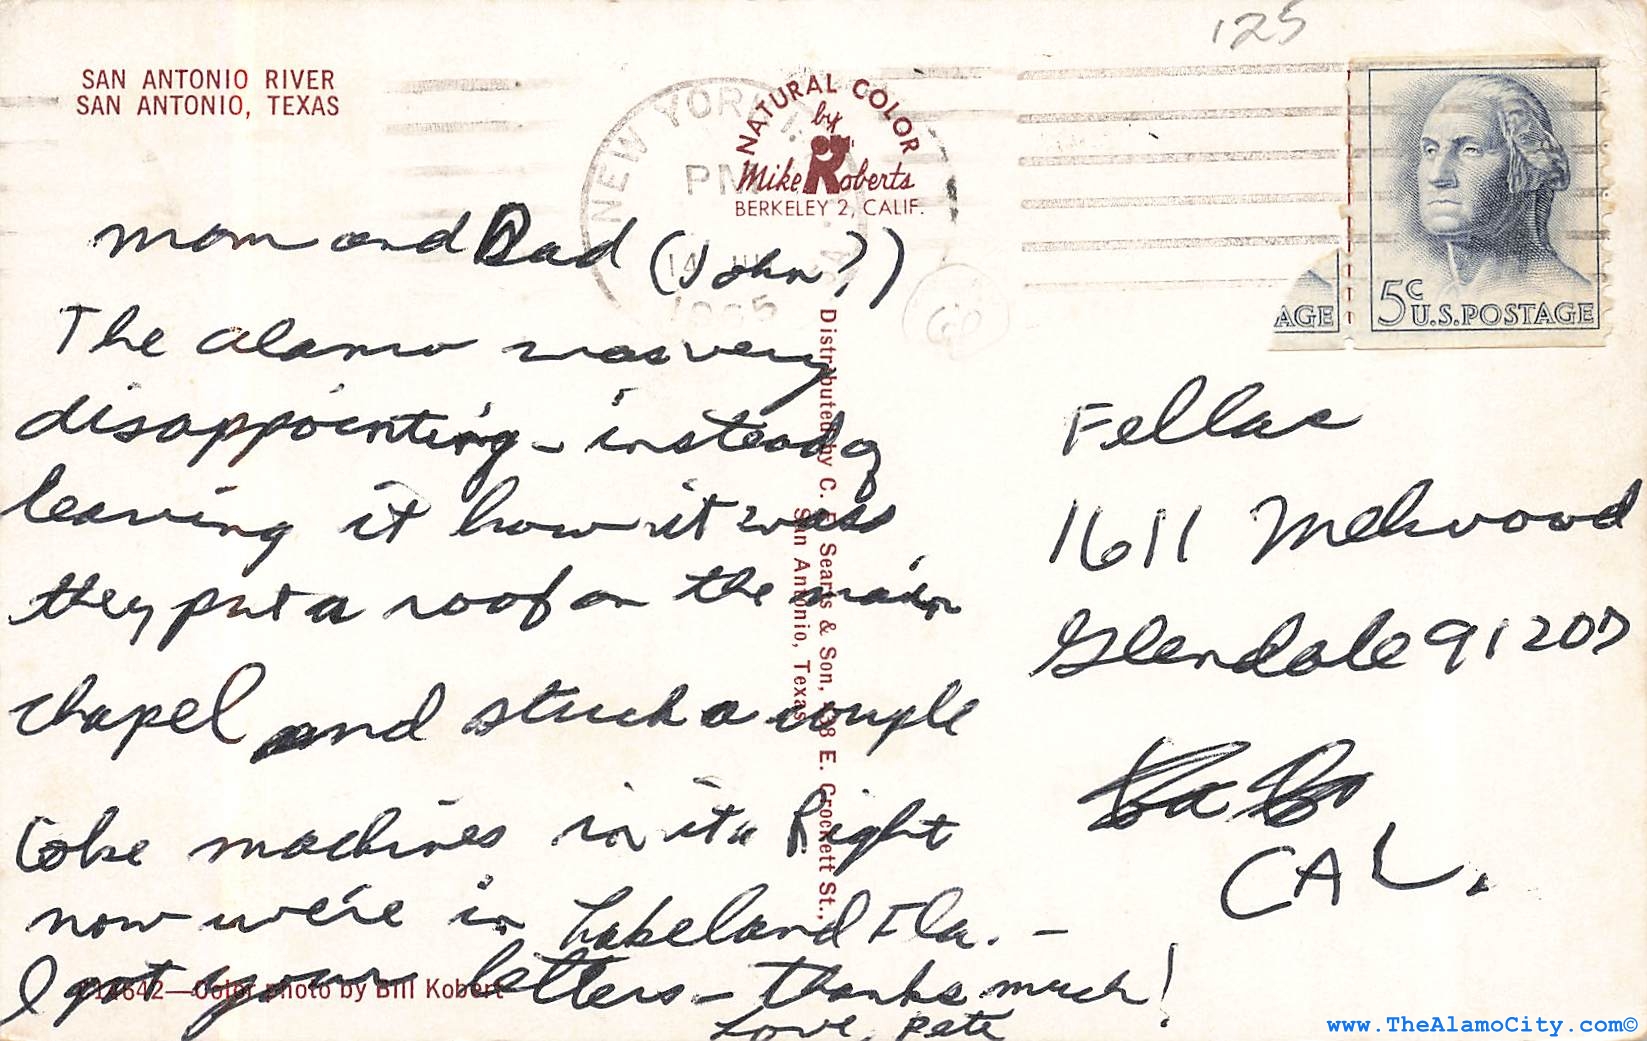 125
SAN ANTONIO RIVER
SAN ANTONIO, TEXAS
NEW YORK
PM
14
1965
NATURAL COLOR
by
Mike Roberts
BERKELEY 2, CALIF.
AGE
5c U.S. POSTAGE
Mom and Dad (John?)
The alamo was very
disappointing - instead of
leaving it how it was
they put a roof on the main
chapel and stuck a couple
Coke machines in it. Right
now we're in Lakeland Fla. -
I got your letters - thanks much!
Love, Pete
Distributed by C. E. Sears & Son, 138 E. Crockett St.,
San Antonio, Texas
642—Color photo by Bill Kobert
Fellas
1611 Melwood
Glendale 91207
CAL.
www.TheAlamoCity.com©